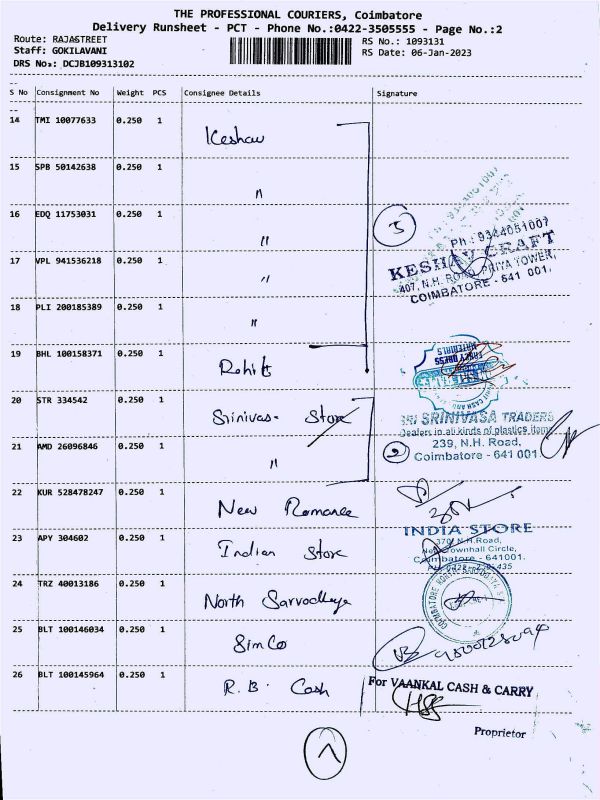 THE PROFESSIONAL COURIERS, Coimbatore
Delivery Runsheet - PCT - Phone No.:0422-3505555 - Page No.:2
Route: RAJASTREET
Staff: GOKILAVANI
DRS No.: DCJB109313102
RS No.: 1093131
RS Date: 06-Jan-2023
S No Consignment No Weight PCS Consignee Details Signature
14 TMI 10077633 0.250 1 Keshav
15 SPB 50142638 0.250 1 "
16 EDQ 11753031 0.250 1 " 5
17 VPL 941536218 0.250 1 "
18 PLI 200185389 0.250 1 "
Ph.: 9344051007
KESHAV CRAFT
407, N.H. ROAD, PRIYA TOWER,
COIMBATORE - 641 001.
19 BHL 100158371 0.250 1 Rohit
FANCY DRESS
MATERIALS
20 STR 334542 0.250 1 Srinivasa Store
SRI SRINIVASA TRADERS
Dealers in all kinds of plastics items
239, N.H. Road,
Coimbatore - 641 001
21 AMD 26096846 0.250 1 " 2
22 KUR 528478247 0.250 1 New Romance
23 APY 304602 0.250 1 Indian Store
INDIA STORE
370, N.H.Road,
Near Townhall Circle,
Coimbatore - 641001.
24 TRZ 40013186 0.250 1 North Sarvodhya
25 BLT 100146034 0.250 1 Simco
26 BLT 100145964 0.250 1 R.B. Cash
For VAANKAL CASH & CARRY
Proprietor